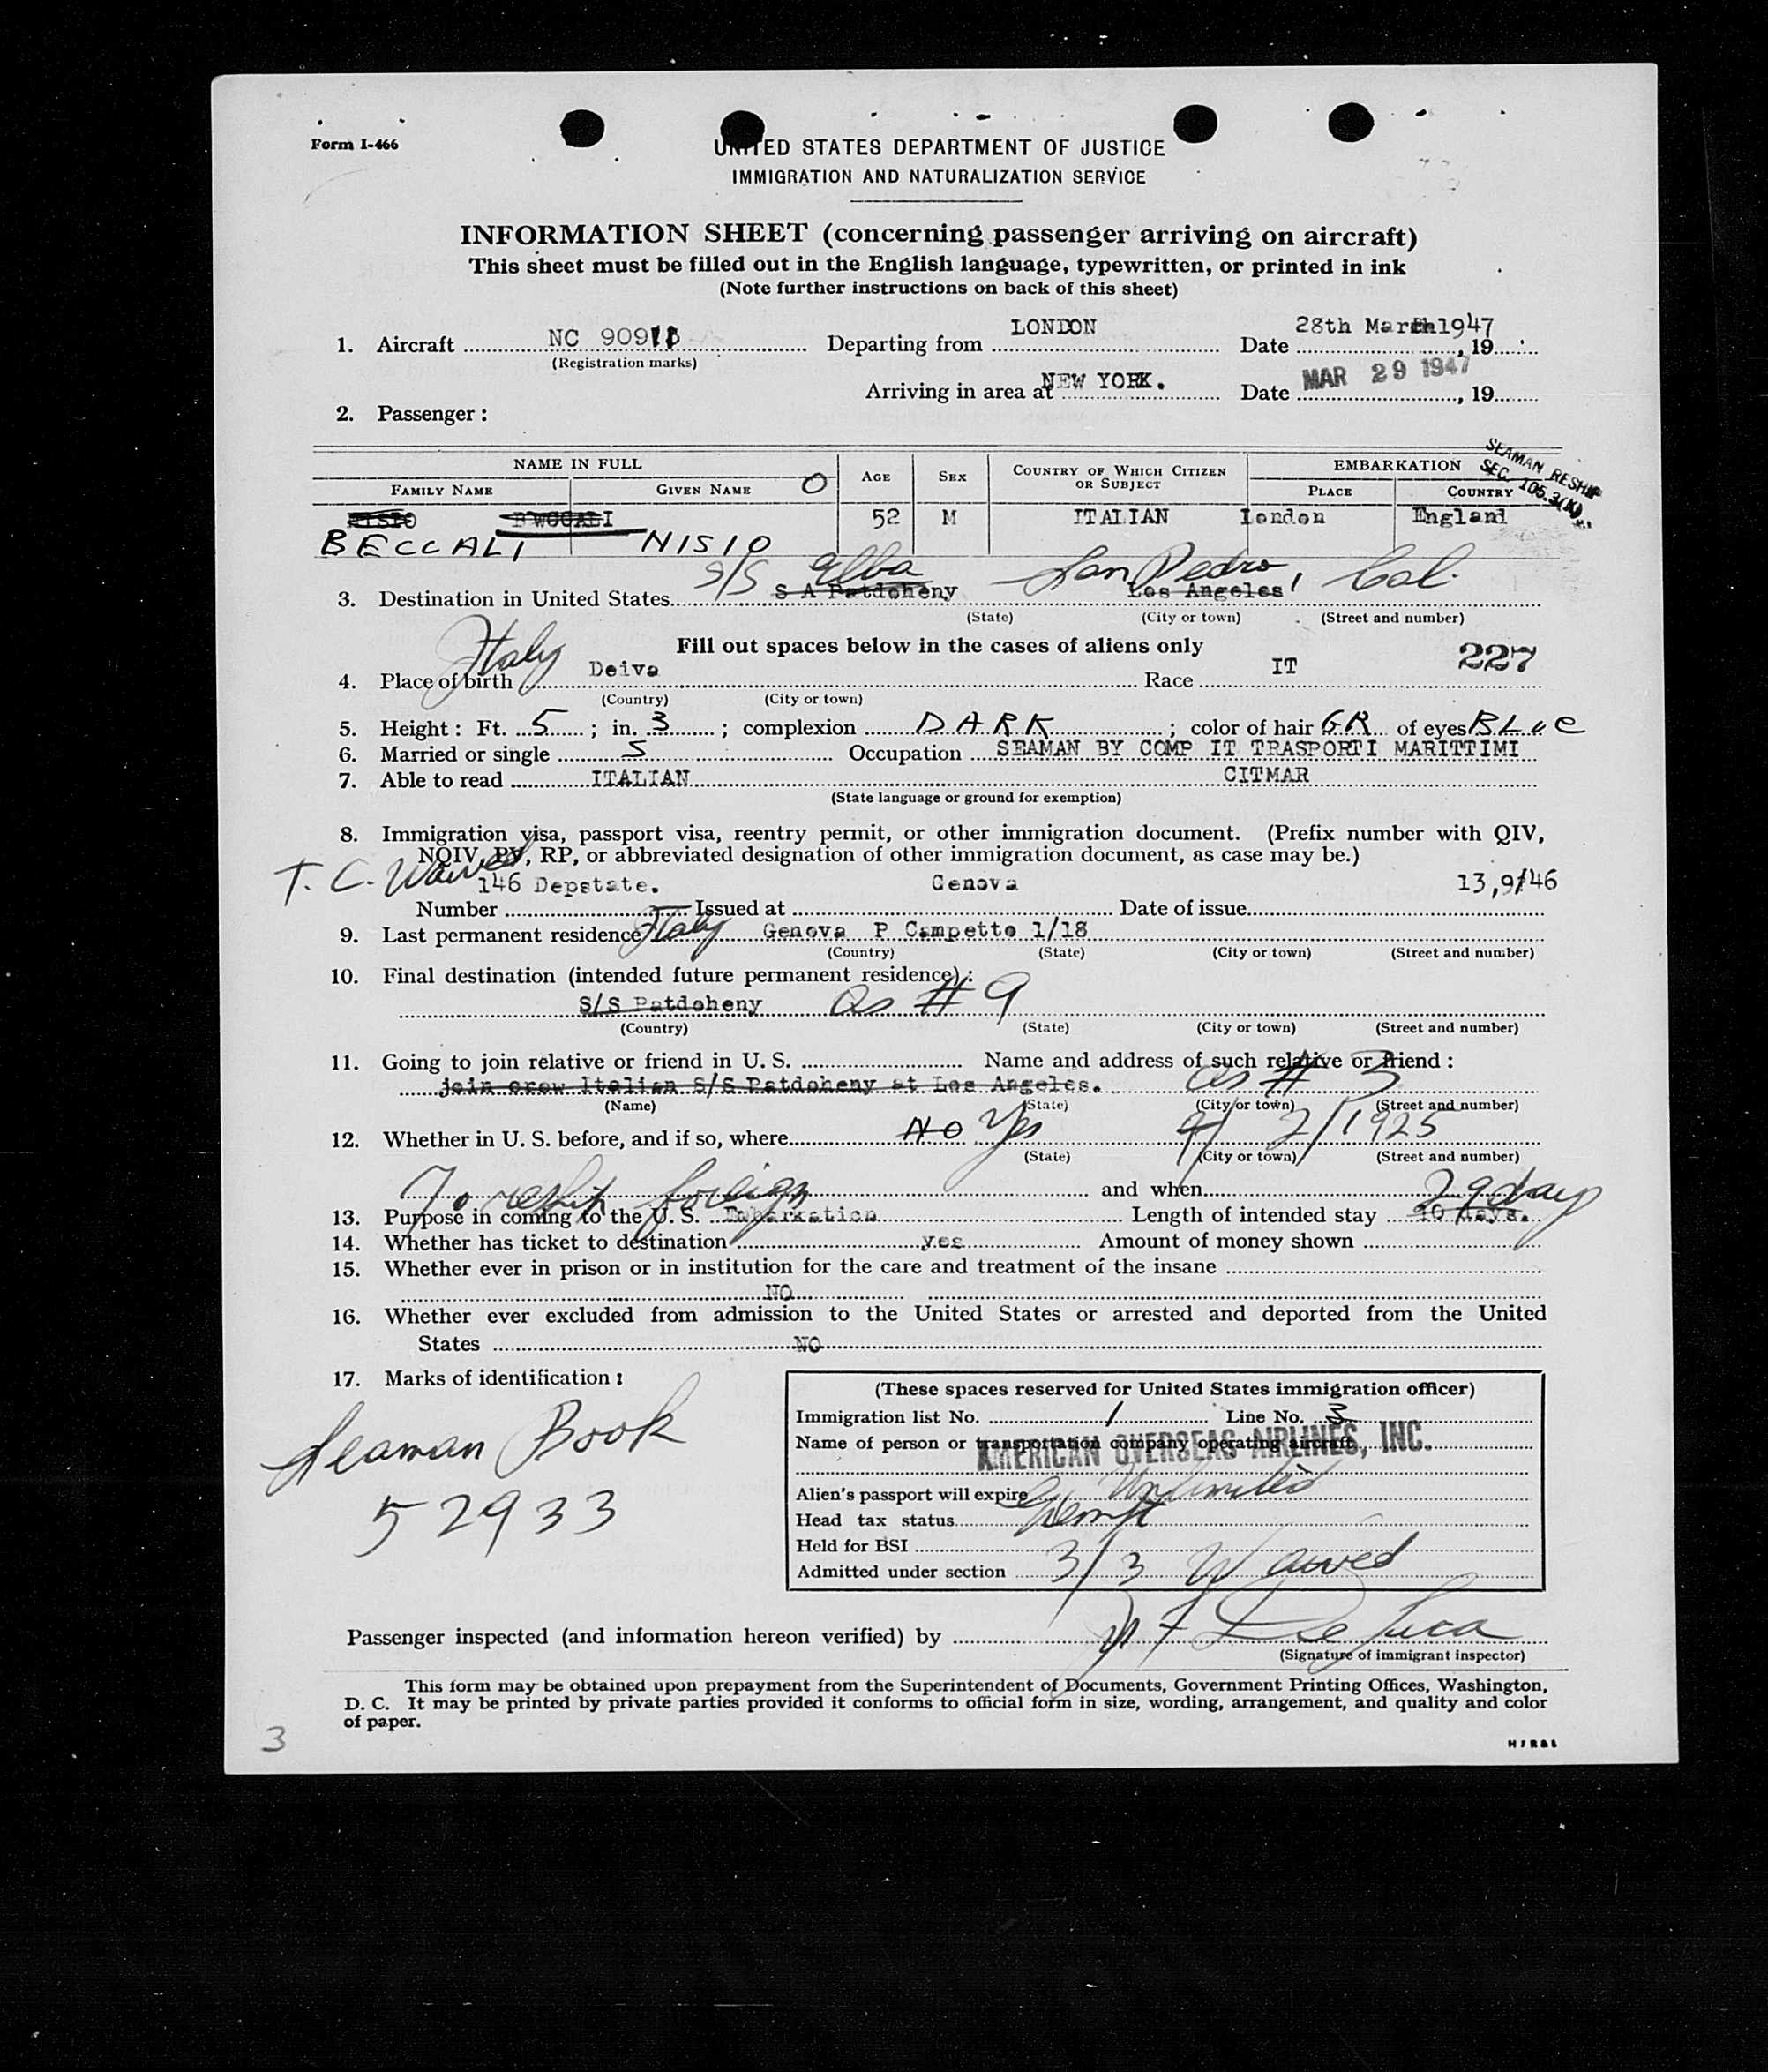 Form I-466
UNITED STATES DEPARTMENT OF JUSTICE
IMMIGRATION AND NATURALIZATION SERVICE
INFORMATION SHEET (concerning passenger arriving on aircraft)
This sheet must be filled out in the English language, typewritten, or printed in ink
(Note further instructions on back of this sheet)
1. Aircraft NC Departing from LONDON Date 28th March 1947, 19
(Registration marks)
Arriving in area at NEW YORK. Date MAR 29 1947, 19
2. Passenger:
NAME IN FULL O AGE SEX COUNTRY OF WHICH CITIZEN OR SUBJECT EMBARKATION SEAMAN RESHIP
FAMILY NAME GIVEN NAME PLACE COUNTRY SEC. 105.3(K)
NISIO 52 M ITALIAN London England
BECCALI NISIO
S/S Elba San Pedro, Cal.
3. Destination in United States S A Patdoheny Los Angeles
(State) (City or town) (Street and number)
Fill out spaces below in the cases of aliens only
227
4. Place of birth Italy Deiva Race IT
(Country) (City or town)
5. Height: Ft. 5; in. 3; complexion DARK; color of hair GR of eyes BLue
6. Married or single S Occupation SEAMAN BY COMP IT TRASPORTI MARITTIMI
7. Able to read ITALIAN CITMAR
(State language or ground for exemption)
8. Immigration visa, passport visa, reentry permit, or other immigration document. (Prefix number with QIV,
NQIV, PV, RP, or abbreviated designation of other immigration document, as case may be.)
T. C. Waived
146 Depstate. Genova 13,9/46
Number Issued at Date of issue
9. Last permanent residence Italy Genova P Campetto 1/18
(Country) (State) (City or town) (Street and number)
10. Final destination (intended future permanent residence):
S/S Patdoheny as # 9
(Country) (State) (City or town) (Street and number)
11. Going to join relative or friend in U. S. Name and address of such relative or friend:
join crew Italian S/S Patdoheny at Los Angeles. as # 3
(Name) (State) (City or town) (Street and number)
12. Whether in U. S. before, and if so, where NO Yes 2/1925
(State) (City or town) (Street and number)
To reship foreign and when 29 days
13. Purpose in coming to the U. S. Embarkation Length of intended stay 10 days.
14. Whether has ticket to destination yes Amount of money shown
15. Whether ever in prison or in institution for the care and treatment of the insane
NO
16. Whether ever excluded from admission to the United States or arrested and deported from the United
States NO
17. Marks of identification:
Seaman Book
52933
(These spaces reserved for United States immigration officer)
Immigration list No. 1 Line No. 3
Name of person or transportation company operating aircraft
AMERICAN OVERSEAS AIRLINES, INC.
Alien's passport will expire Unlimited
Head tax status Exempt
Held for BSI
Admitted under section 3/3 Waived
Passenger inspected (and information hereon verified) by De Luca
(Signature of immigrant inspector)
This form may be obtained upon prepayment from the Superintendent of Documents, Government Printing Offices, Washington,
D. C. It may be printed by private parties provided it conforms to official form in size, wording, arrangement, and quality and color
of paper.
3